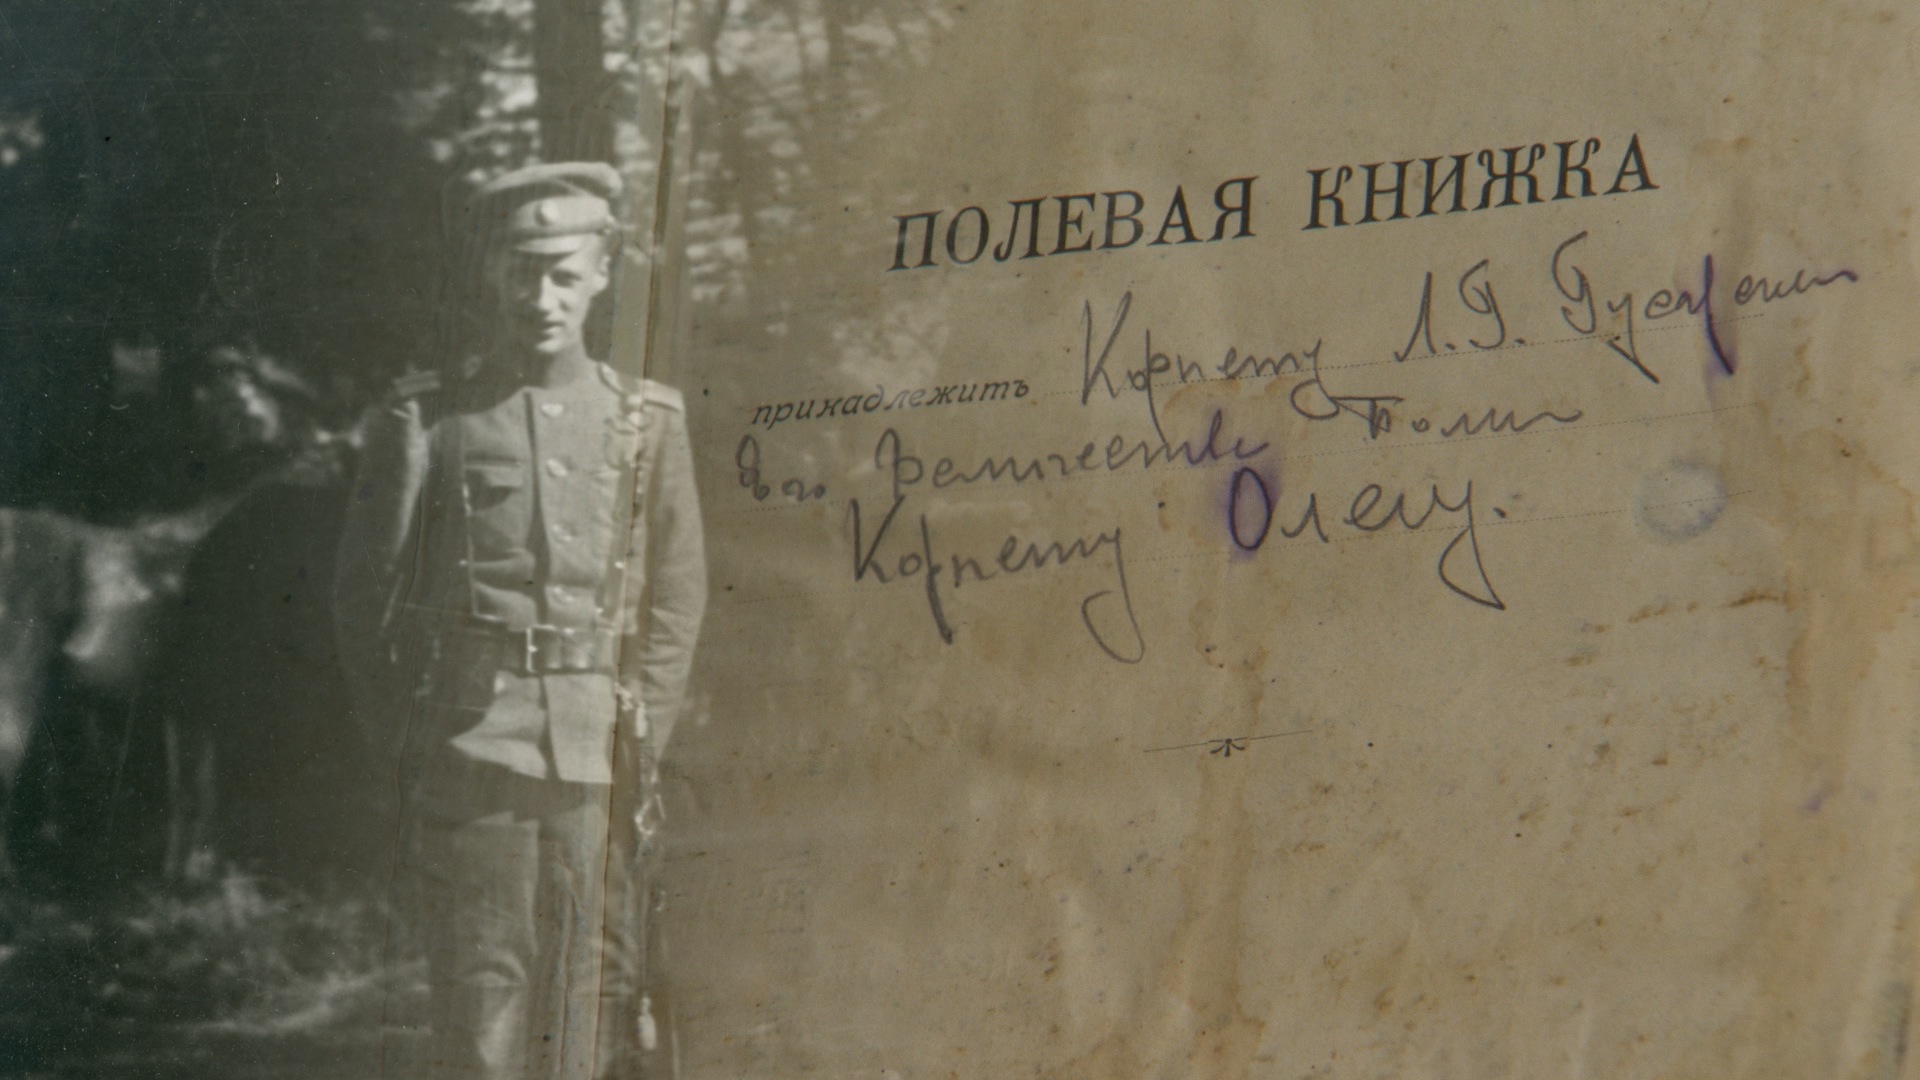 ПОЛЕВАЯ КНИЖКА
принадлежитъ Корнету Л.Г. Гусарскаго
Его Величества Полка
Корнету Олегу.